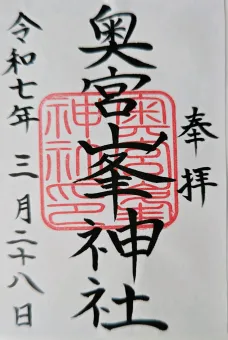 奉拝
奥宮峯神社
奥宮峯神社印
令和七年三月二十八日